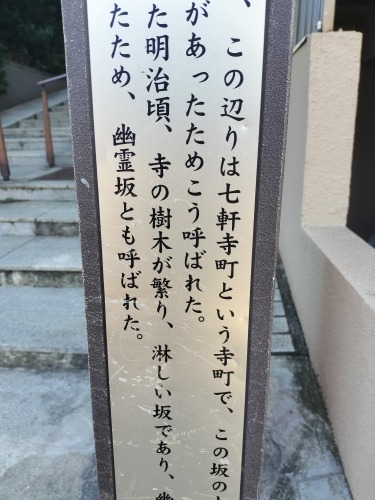 、この辺りは七軒寺町という寺町で、この坂の
があったためこう呼ばれた。
た明治頃、寺の樹木が繁り、淋しい坂であり、幽
たため、幽霊坂とも呼ばれた。